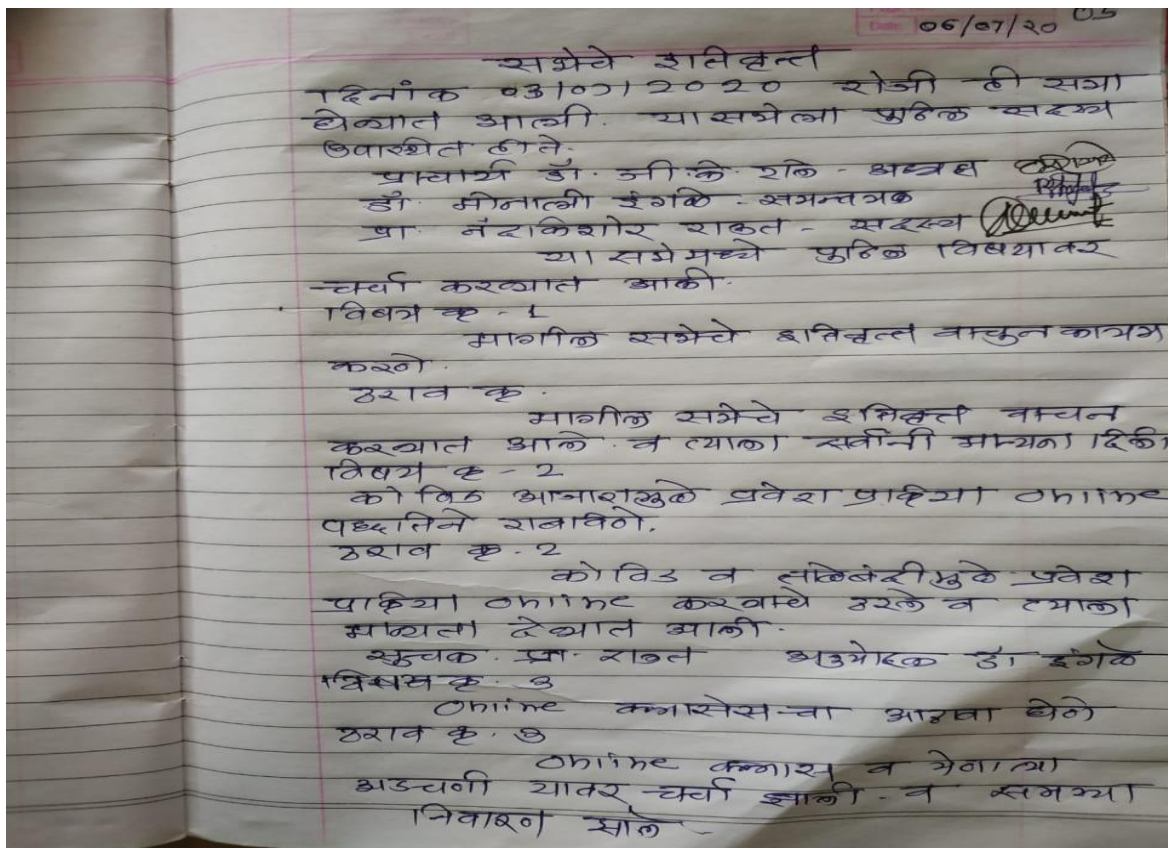 Date 06/07/20 05
सभेचे इतिवृत्त
दिनांक 03/07/2020 रोजी ही सभा
घेण्यात आली. या सभेला पुढिल सदस्य
उपास्थित होते.
प्राचार्य डॉ. जी. के. राळे - अध्यक्ष
डॉ. मोनाली इंगळे - समन्वयक
प्रा. नंदकिशोर राऊत - सदस्य
या सभेमध्ये पुढिल विषयावर
चर्चा करण्यात आली.
विषय क्र - 1
मागील सभेचे इतिवृत्त वाचुन कायम
करणे.
ठराव क्र.
मागील सभेचे इतिवृत्त वाचन
करण्यात आले व त्याला सर्वांनी मान्यता दिली
विषय क्र - 2
कोविड आजारामुळे प्रवेश प्राक्रिया online
पध्दतिने राबाविणे.
ठराव क्र. 2
कोविड व ताळेबंदीमुळे प्रवेश
प्राक्रिया online करवाचे ठरले व त्याला
मान्यता देण्यात आली.
सुचक. प्रा. राऊत अनुमोदक डॉ इंगळे
विषय क्र. 3
Online क्लासेस चा आढावा घेणे
ठराव क्र. 3
Online क्लास व येणाऱ्या
अडचणी यावर चर्चा झाली. व समस्या
निवारण झाले -